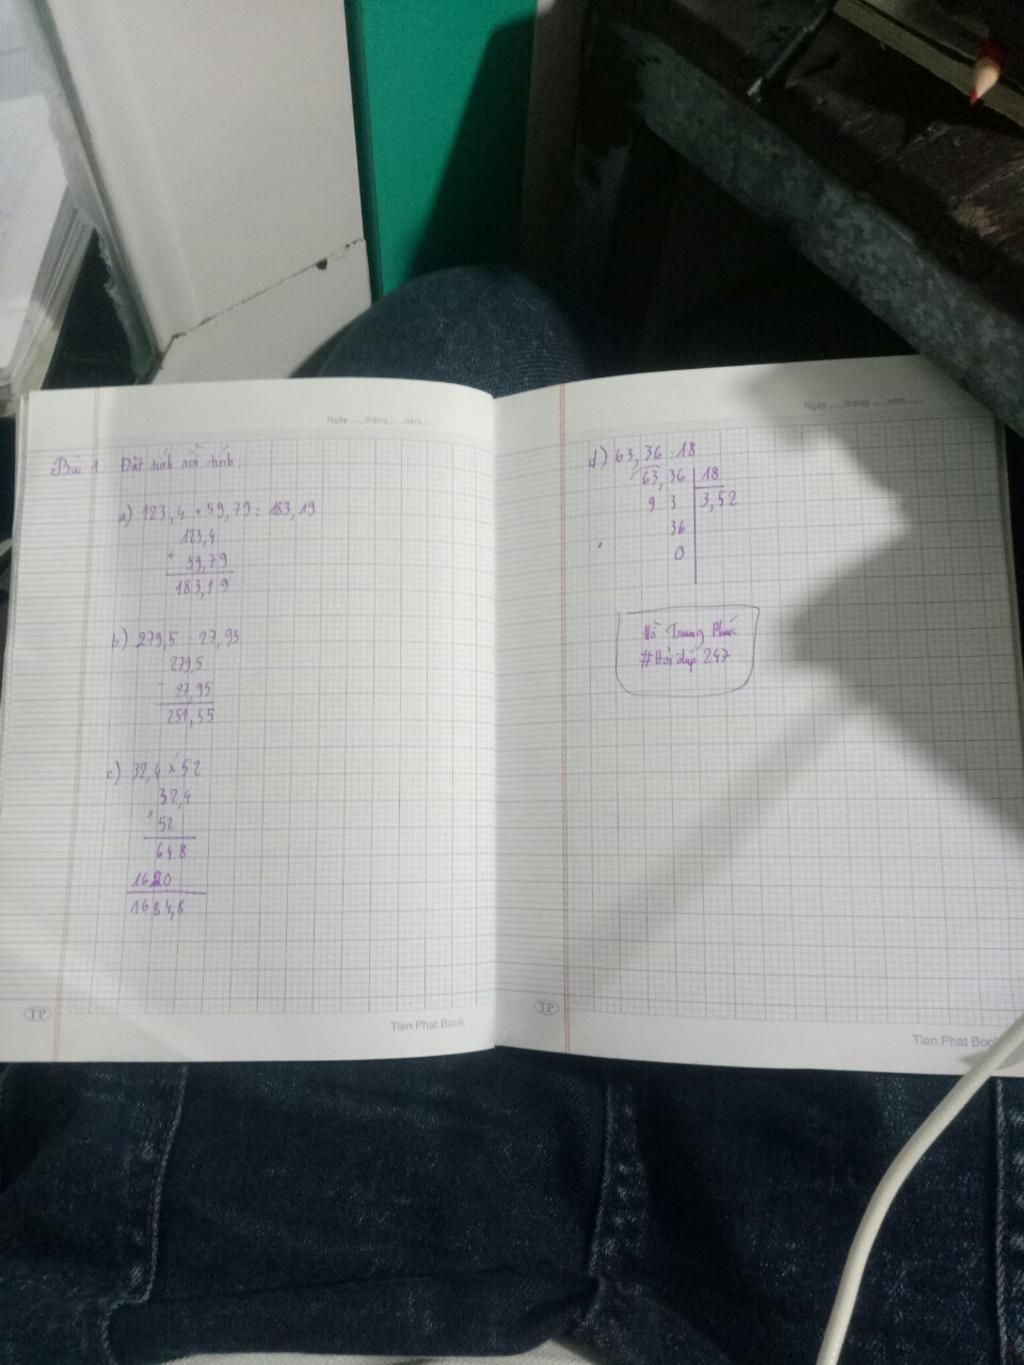 Ngày ..... tháng ..... năm .....
Bài 1 Đặt tính rồi tính.
a) 123,4 + 59,79 = 183,19
123,4
+
59,79
183,19
b) 279,5 - 27,95
279,5
-
27,95
251,55
c) 32,4 × 52
32,4
×
52
648
1620
1684,8
TP
Tien Phat Book
Ngày ..... tháng ..... năm .....
d) 63,36 : 18
63,36 18
9 3 3,52
36
0
Hồ Trung Phúc
#Hỏi đáp 247
TP
Tien Phat Book